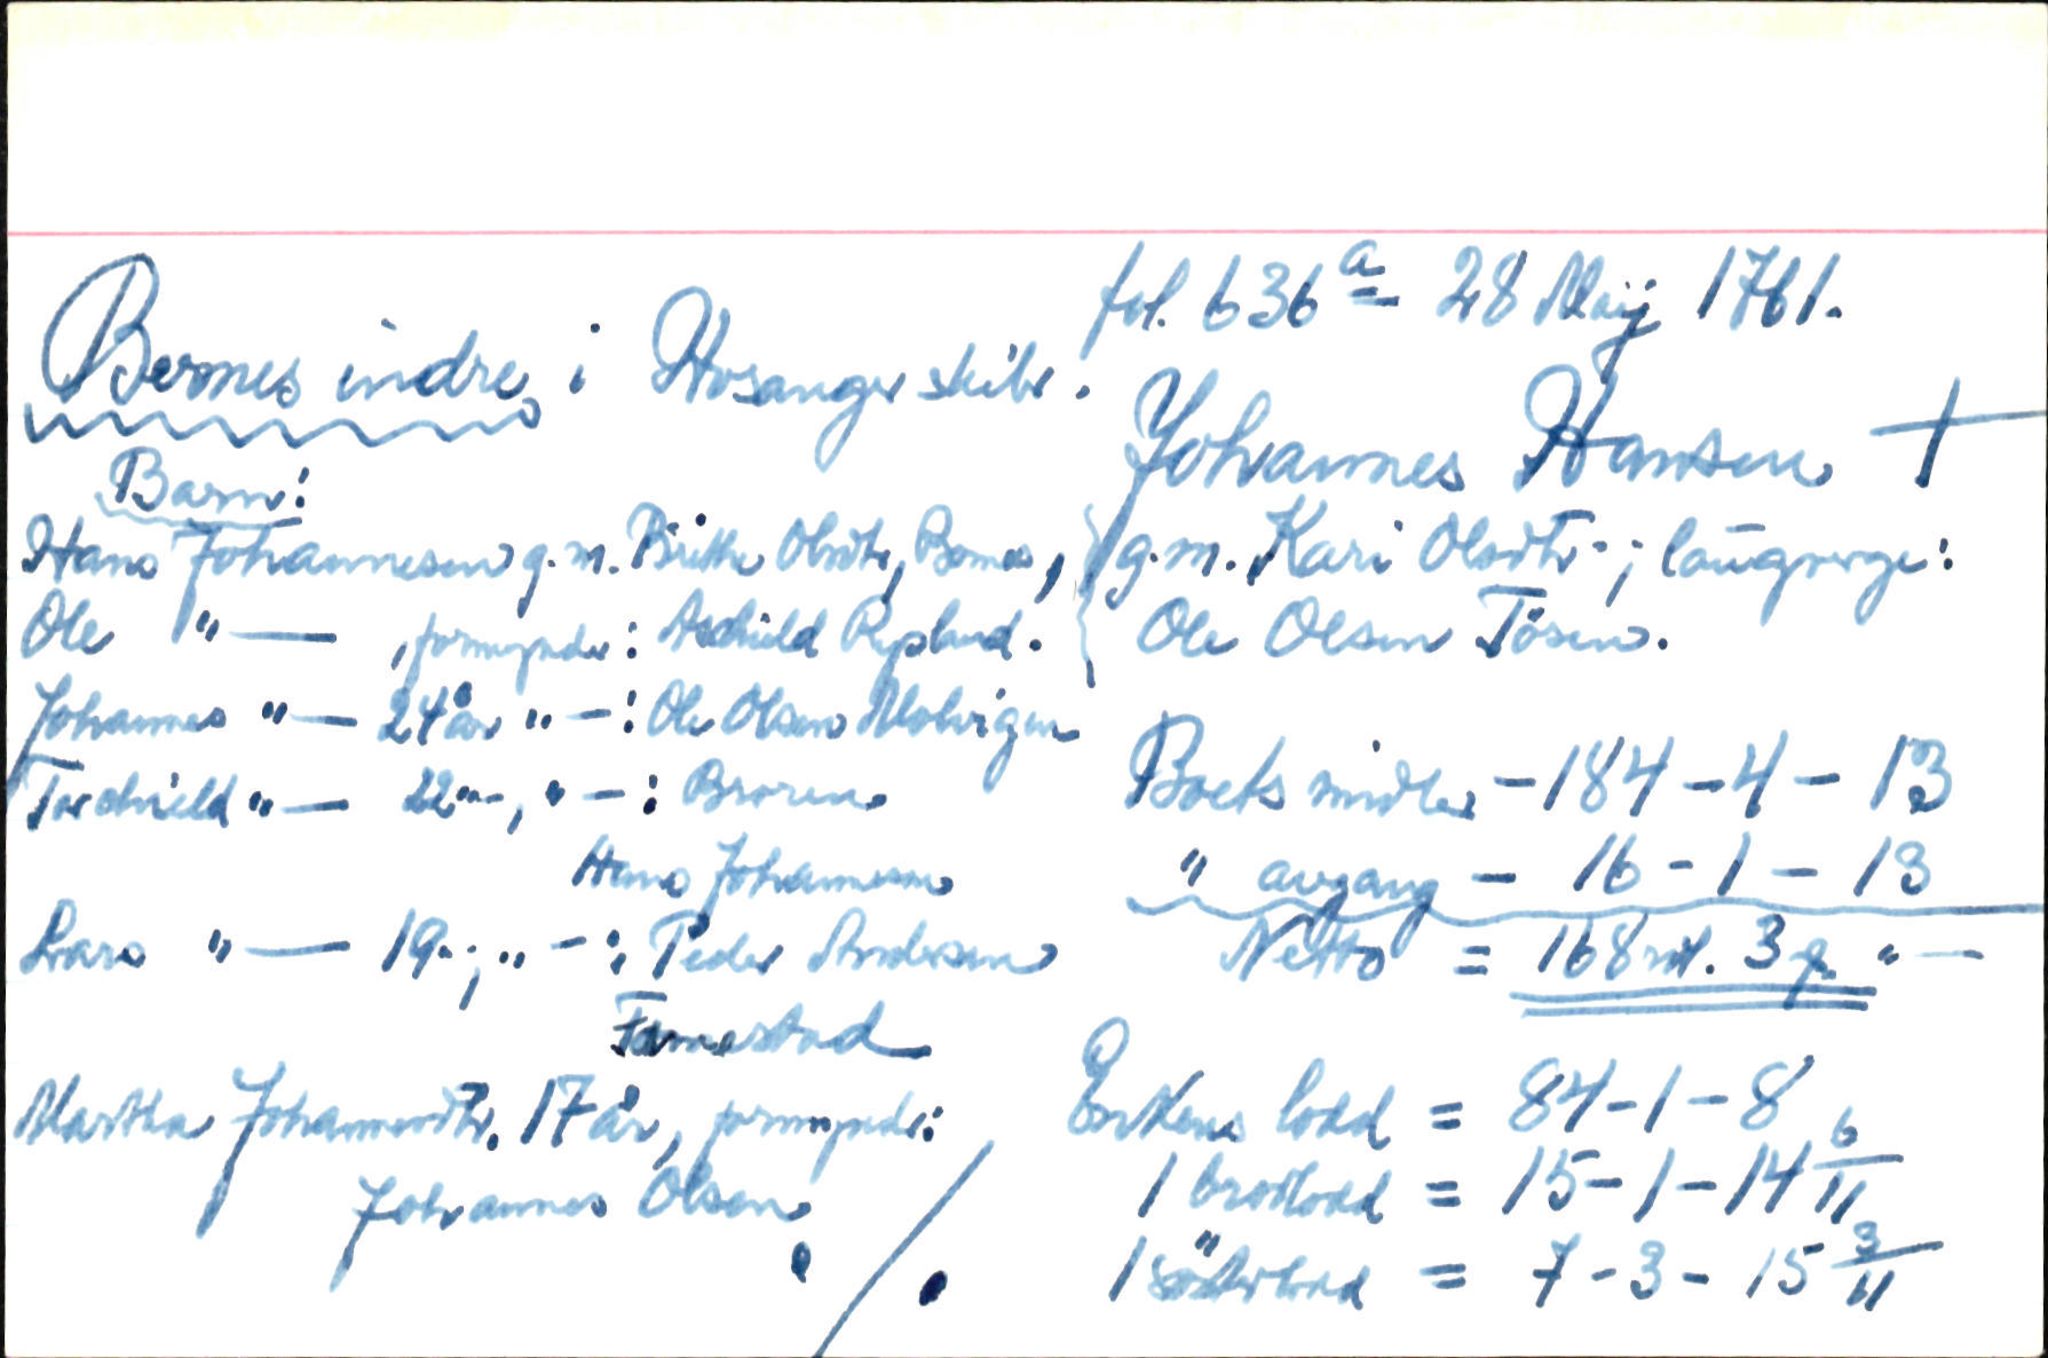 fol. 636 a = 28 Maij 1761.
Bernes indre i Hosanger skibr.
Johannes Hansen +
g.m. Kari Olsdtr.; laugverge:
Ole Olsen Tösen.
Barn:
Hans Johannesen g.m. Brithe Olsdtr, Bernes,
Ole " — , formynder: Aschield Rypland.
Johannes " — 24 år " — : Ole Olsen Molvigen
Torchield " — 22 " , " — : Broren
Hans Johannesen
Lars " — 19 " ; " — : Peder Andersen
Fammestad
Martha Johannesdtr. 17 år, formynder:
Johannes Olsen
./.
Boets midler - 184 - 4 - 13
" avgang - 16 - 1 - 13
Netto = 168 rdl. 3 q. " —
Enkens lodd = 84 - 1 - 8
1 brodlodd = 15 - 1 - 14 6/11
1 søsterlodd = 7 - 3 - 15 3/11